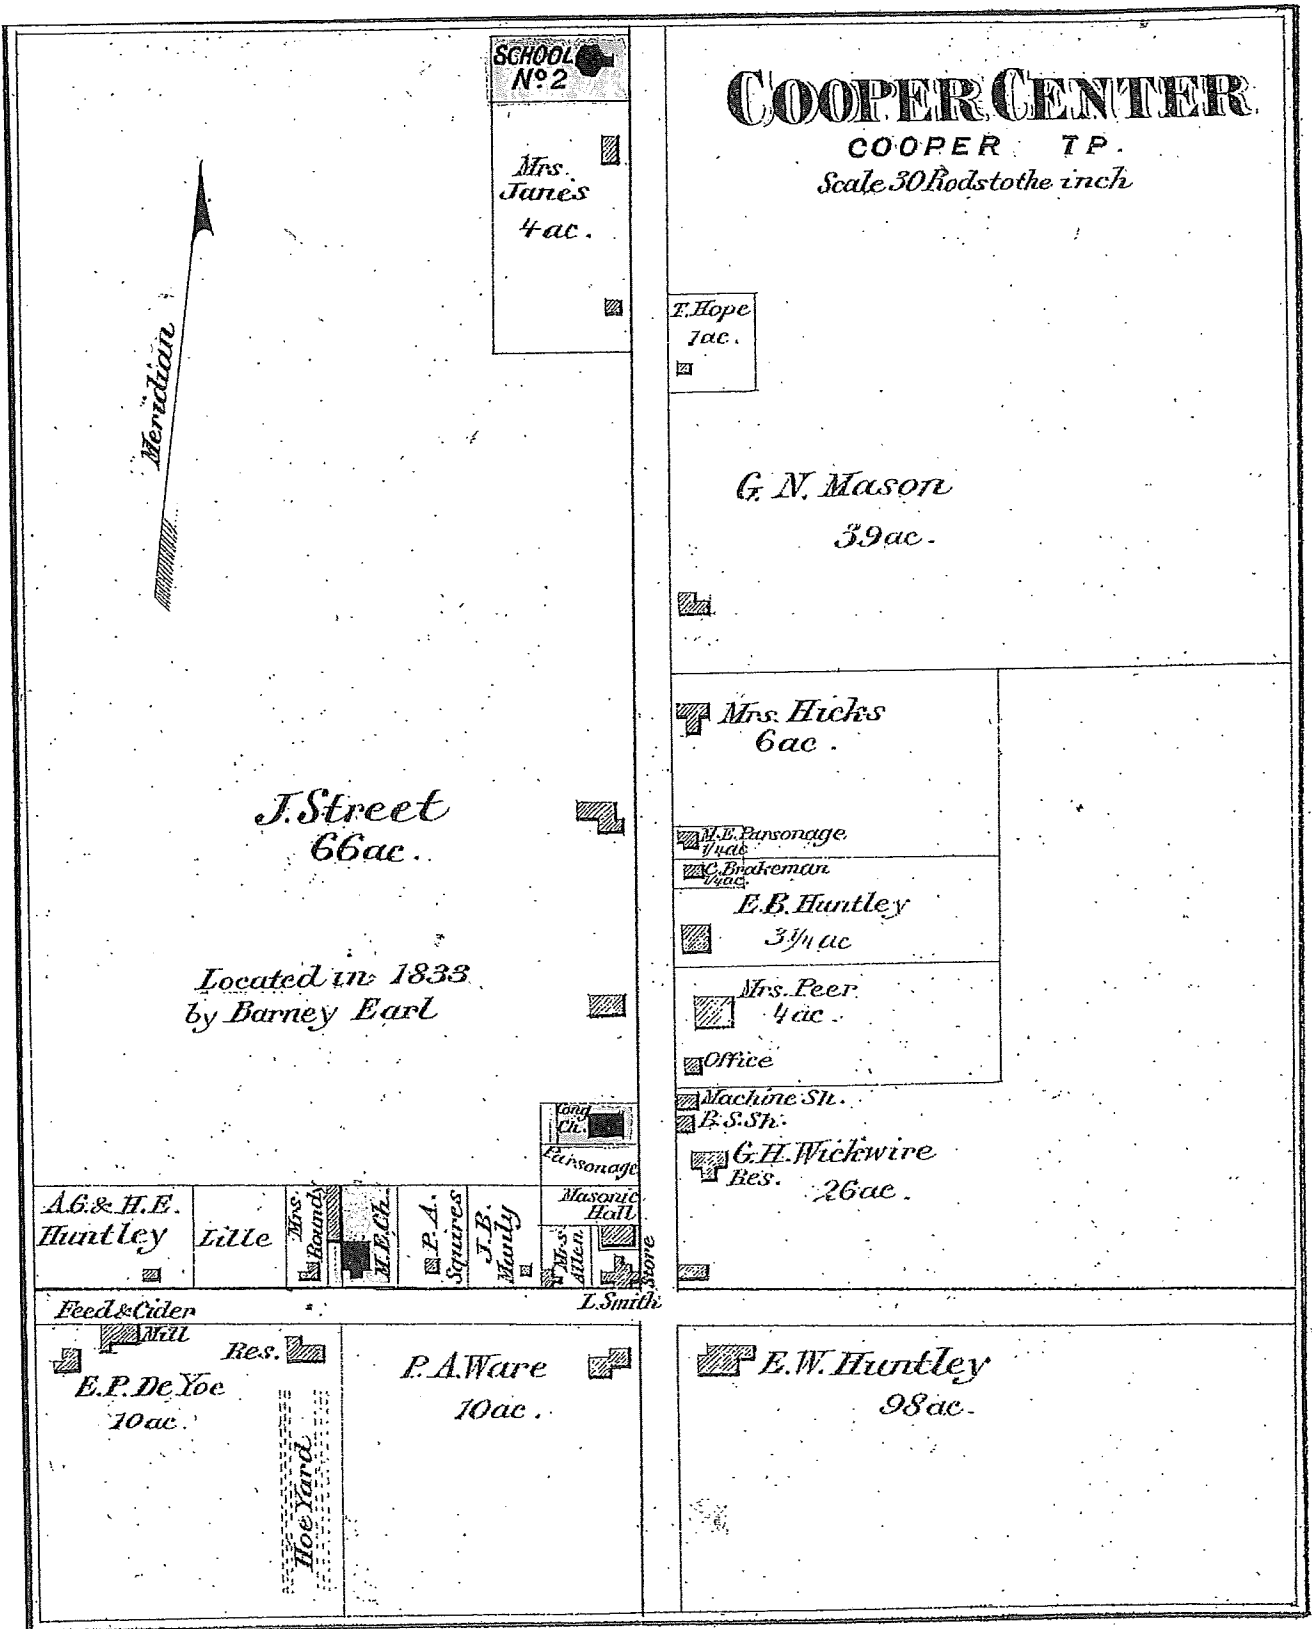 COOPER CENTER
COOPER TP.
Scale 30 Rods to the inch
SCHOOL
No. 2
Mrs.
Janes
4 ac.
Meridian
T. Hope
1 ac.
G. N. Mason
39 ac.
Mrs. Hicks
6 ac.
J. Street
66 ac.
M.E. Parsonage
1/4 ac
C. Brakeman
1/4 ac.
E.B. Huntley
3 1/4 ac
Located in 1833
by Barney Earl
Mrs. Peer
4 ac.
Office
Machine Sh.
B.S. Sh.
Cong
Ch.
Parsonage
G.H. Wickwire
Res. 26 ac.
A.G. & H.E.
Huntley
Lille
Mrs.
Roundy
M.E. Ch.
P. A.
Squares
J. B.
Manly
Masonic
Hall
Mrs.
Allen
Store
L. Smith
Feed & Cider
Mill
Res.
E.P. De Yoe
10 ac.
Hoe Yard
P. A. Ware
10 ac.
E.W. Huntley
98 ac.